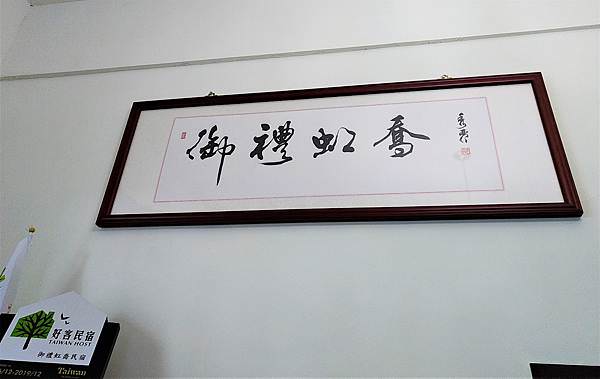 御禮虹喬
好客民宿
TAIWAN HOST
御禮虹喬民宿
/12-2019/12
Taiwan